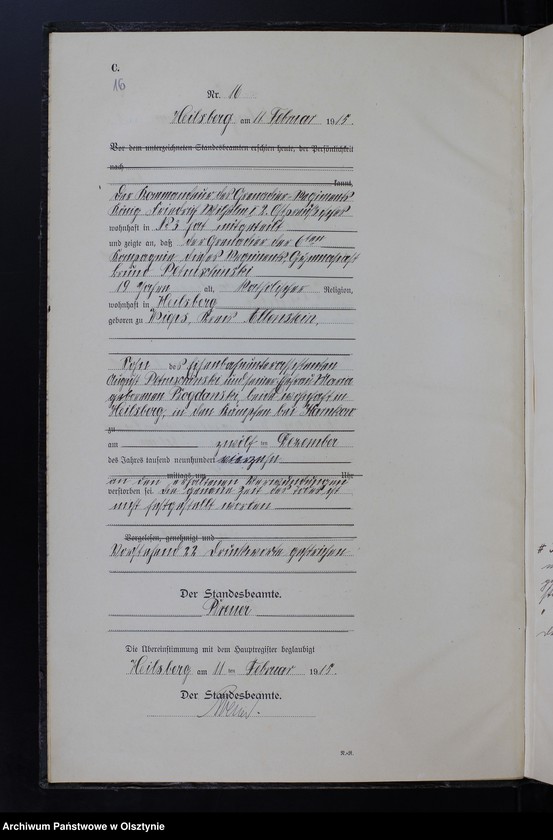 C.
16
Nr. 16
Heilsberg am 11 Februar 1915.
Vor dem unterzeichneten Standesbeamten erschien heute, der Persönlichkeit
nach
kannt,
Der Kommandeur des Grenadier-Regiments
König Friedrich Wilhelm I 2. Ostpreußisches
wohnhaft in No 3 hat mitgeteilt
und zeigte an, daß der Grenadier der 6ten
Kompagnie dieses Regiments,
19 Jahre alt, katholischer Religion,
wohnhaft in Heilsberg
geboren zu Kreis Allenstein,
Sohn des
August und seiner Ehefrau
geborenen wohnhaft in
Heilsberg, in den Kämpfen bei
zu
am zwölf ten Dezember
des Jahres tausend neunhundert vierzehn
mittags um Uhr
an den erhaltenen Verwundungen
verstorben sei. Die genaue Zeit des Todes ist
nicht festgestellt worden
Vorgelesen, genehmigt und
Vorstehend 22 Druckworte gestrichen
Der Standesbeamte.
Die Übereinstimmung mit dem Hauptregister beglaubigt
Heilsberg am 11 ten Februar 1915.
Der Standesbeamte.
Archiwum Państwowe w Olsztynie